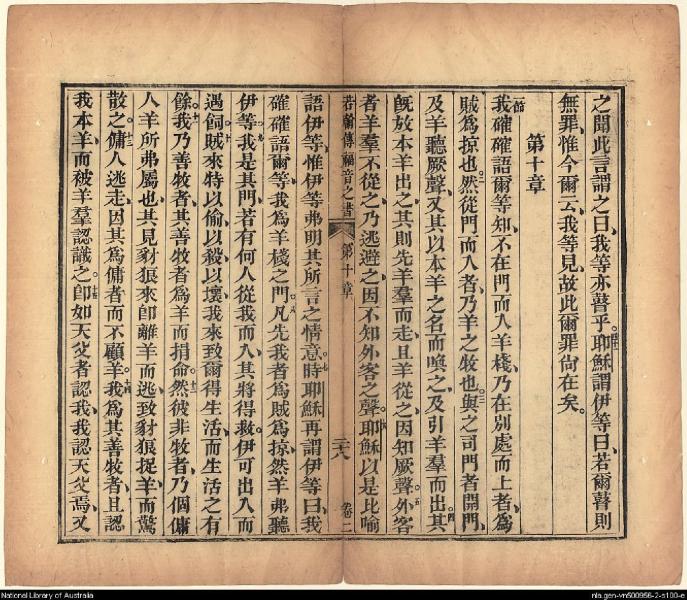 之聞此言謂之曰、我等亦瞽乎。耶穌謂伊等曰、若爾瞽則
無罪、惟今爾云、我等見、故此爾罪尚在矣。
第十章
我確確語爾等知、不在門而入羊棧、乃在別處而上者、為
賊為掠也。然從門而入者、乃羊之牧也。與之司門者開門、
及羊聽厥聲、又其以本羊之名而喚之、及引羊羣而出。其
既放本羊出之、其則先羊羣而走、且羊從之、因知厥聲。外客
者羊羣不從之、乃逃避之、因不知外客之聲。耶穌以是比喻
若翰傳福音之書 第十章 卷二
語伊等、惟伊等弗明其所言之情意。時耶穌再謂伊等曰、我
確確語爾等、我為羊棧之門。凡先我者為賊為掠、然羊弗聽
伊等。我是其門、若有何人從我而入、其將得救、伊可出入而
遇飼。賊來特以偷、以殺、以壞、我來致爾得生活、而生活之有
餘。我乃善牧者、其善牧者為羊而捐命。然彼非牧者、乃個傭
人羊所弗屬也、其見豺狼來即離羊而逃、致豺狼捉羊而驚
散之。傭人逃走、因其為傭者而不顧羊。我為其善牧者、且認
我本羊、而被羊羣認識之。即如天父者認我、我認天父焉、又
National Library of Australia
nla.gen-vn500956-2-s100-e